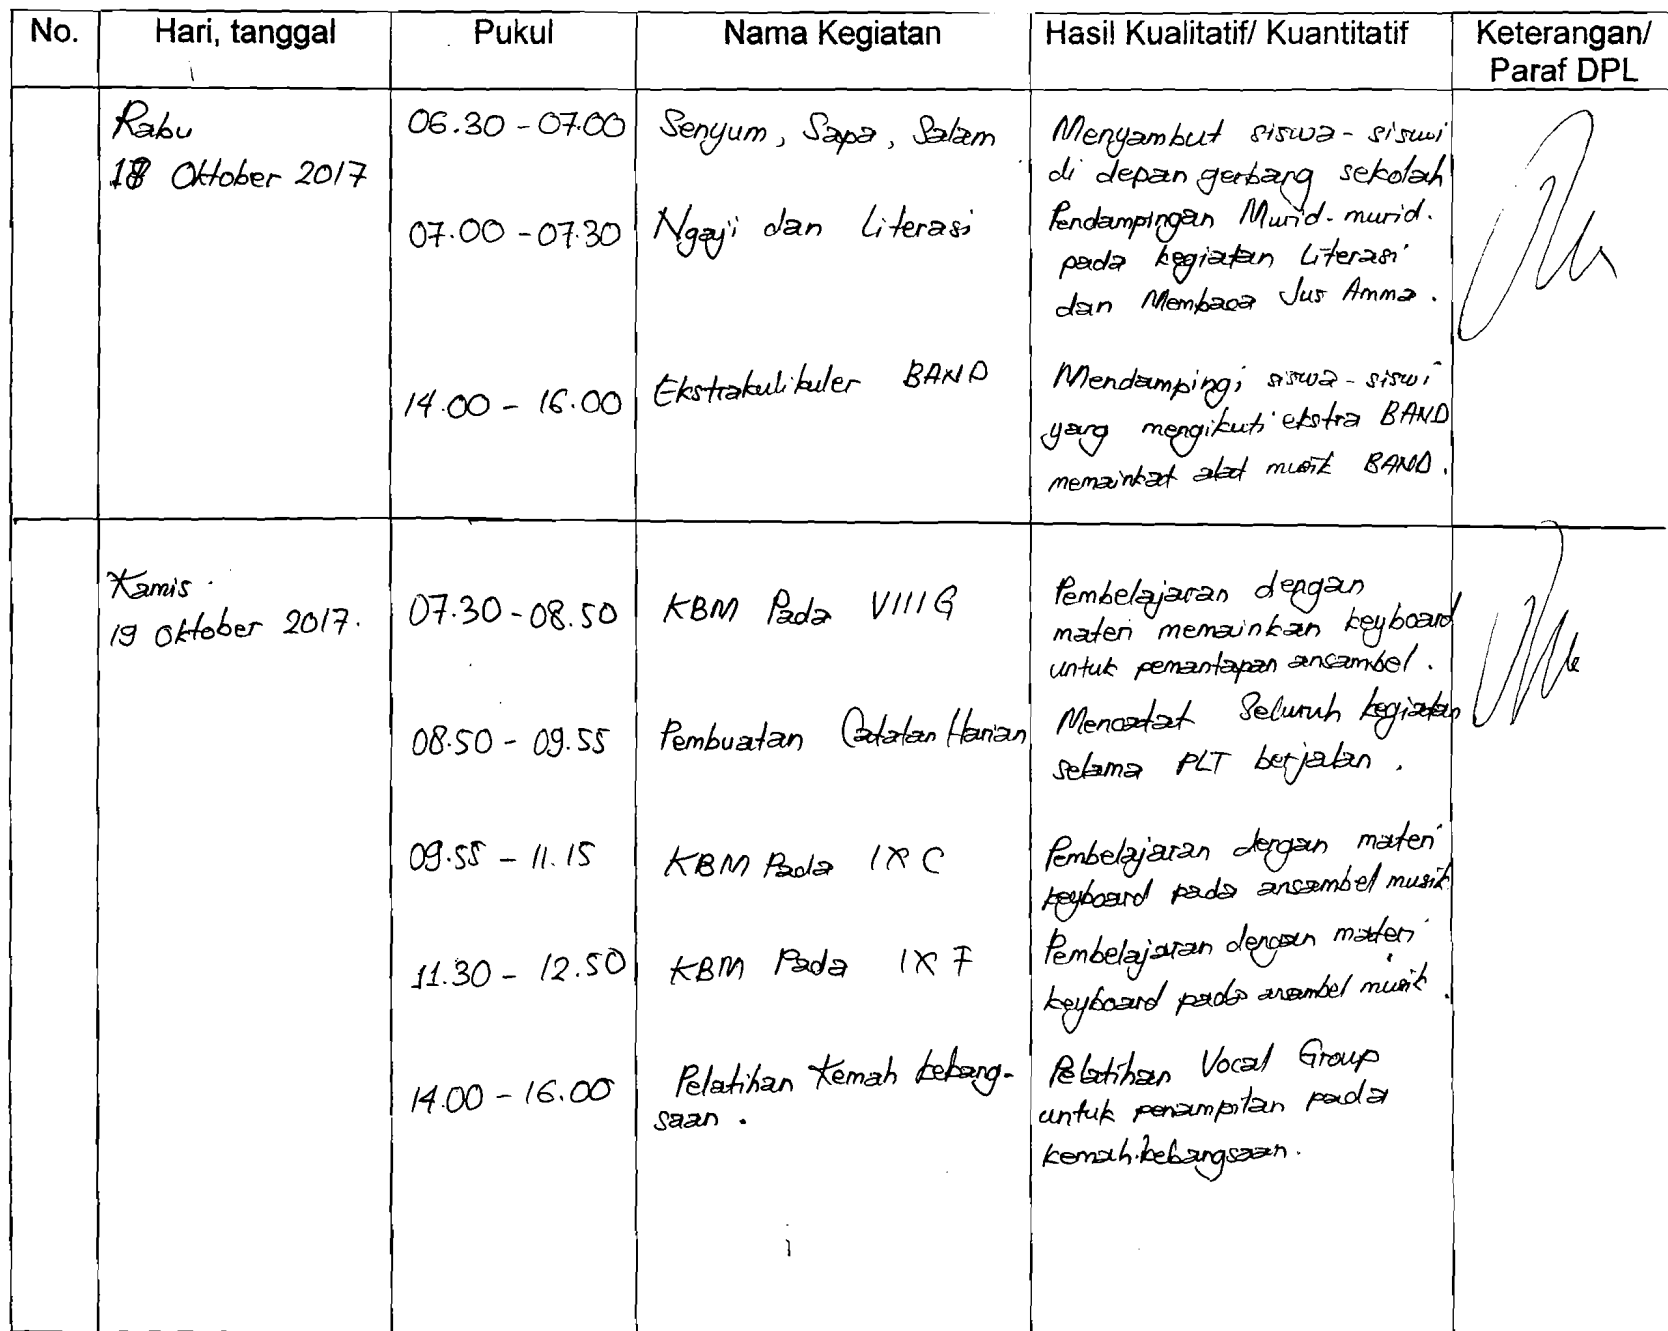 No. Hari, tanggal Pukul Nama Kegiatan Hasil Kualitatif/ Kuantitatif Keterangan/
Paraf DPL
Rabu 06.30 - 07.00 Senyum, Sapa, Salam Menyambut siswa - siswi
18 Oktober 2017 di depan gerbang sekolah
07.00 - 07.30 Ngaji dan Literasi Pendampingan Murid-murid.
pada kegiatan Literasi
dan Membaca Jus Amma.
14.00 - 16.00 Ekstrakulikuler BAND Mendampingi siswa - siswi
yang mengikuti ekstra BAND
memainkat alat musik BAND.
Kamis
19 Oktober 2017. 07.30 - 08.50 KBM Pada VIII G Pembelajaran dengan
materi memainkan keyboard
untuk pemantapan ansambel.
08.50 - 09.55 Pembuatan Catatan Harian Mencatat Seluruh kegiatan
selama PLT berjalan.
09.55 - 11.15 KBM Pada IX C Pembelajaran dengan materi
keyboard pada ansambel musik
11.30 - 12.50 KBM Pada IX F Pembelajaran dengan materi
keyboard pada ansambel musik.
14.00 - 16.00 Pelatihan Kemah kebang- Pelatihan Vocal Group
saan. untuk penampilan pada
kemah kebangsaan.